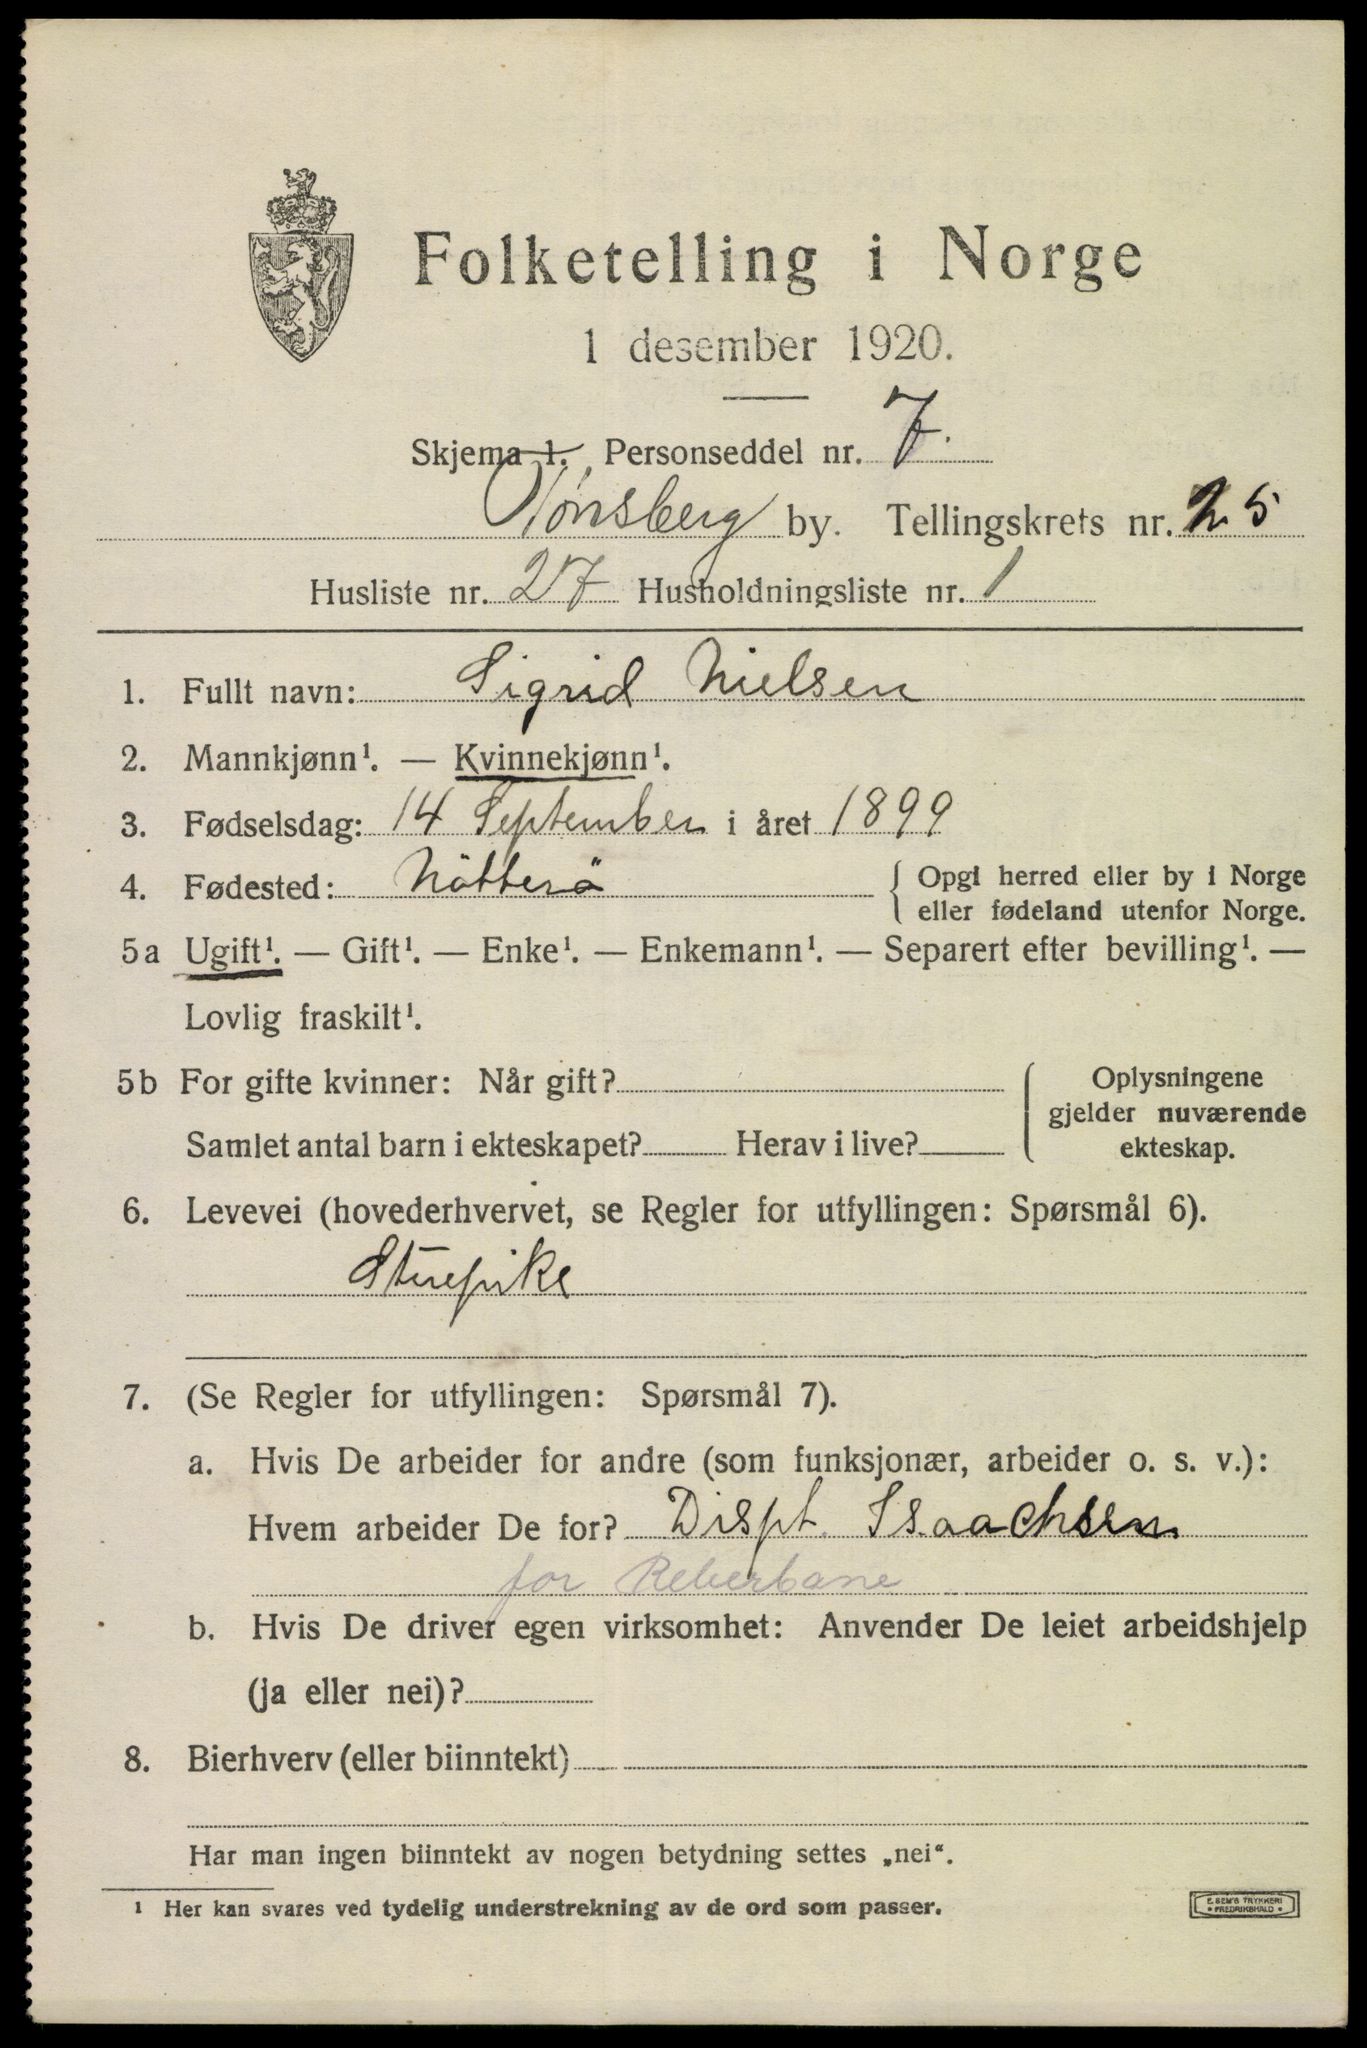 Folketelling i Norge
1 desember 1920.
Skjema 1. Personseddel nr. 7.
Tønsberg by. Tellingskrets nr. 25
Husliste nr. 27 Husholdningsliste nr. 1
1. Fullt navn: Sigrid Nielsen
2. Mannkjønn¹. — Kvinnekjønn¹.
3. Fødselsdag: 14 September i året 1899
4. Fødested: Nötterö { Opgi herred eller by i Norge
eller fødeland utenfor Norge.
5a Ugift¹. — Gift¹. — Enke¹. — Enkemann¹. — Separert efter bevilling¹. —
Lovlig fraskilt¹.
5b For gifte kvinner: Når gift? { Oplysningene
gjelder nuværende
Samlet antal barn i ekteskapet? Herav i live? ekteskap.
6. Levevei (hovederhvervet, se Regler for utfyllingen: Spørsmål 6).
Stuepike
7. (Se Regler for utfyllingen: Spørsmål 7).
a. Hvis De arbeider for andre (som funksjonær, arbeider o. s. v.):
Hvem arbeider De for? Dispt. Isaachsen
for Reberbane
b. Hvis De driver egen virksomhet: Anvender De leiet arbeidshjelp
(ja eller nei)?
8. Bierhverv (eller biinntekt)
Har man ingen biinntekt av nogen betydning settes „nei“.
¹ Her kan svares ved tydelig understrekning av de ord som passer.
E. SEM'S TRYKKERI
FREDRIKSHALD